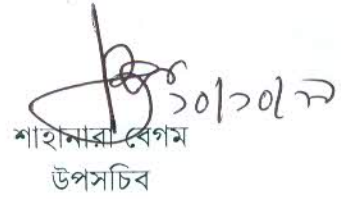 ১০/১০/১৮
শাহানারা বেগম
উপসচিব